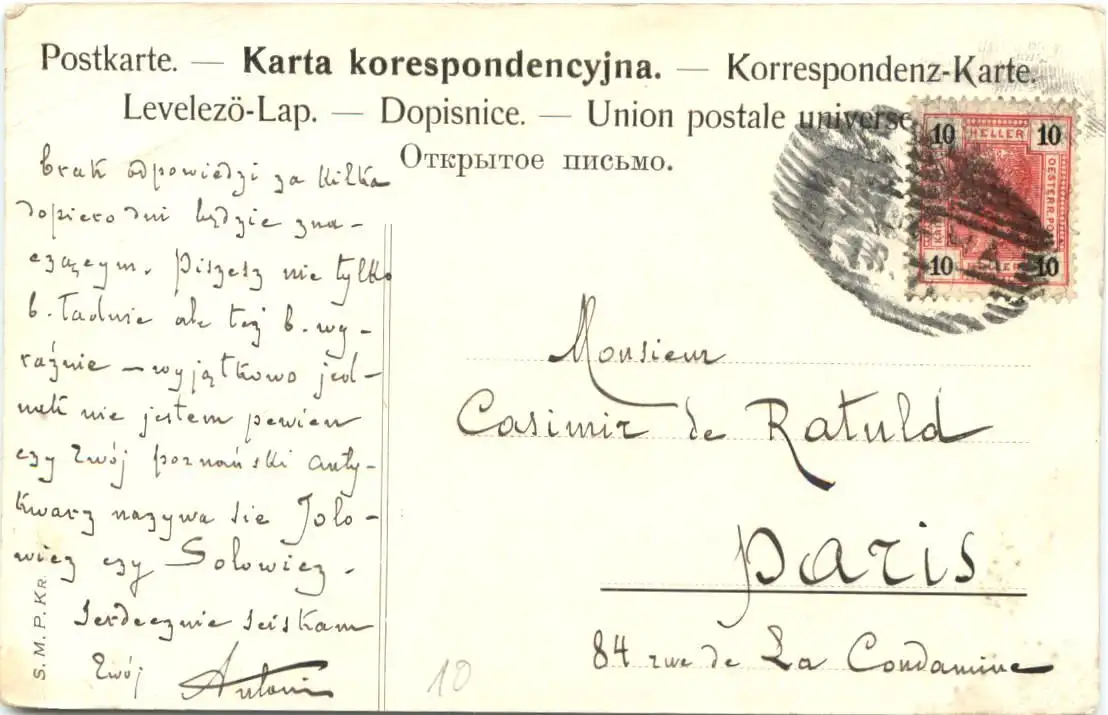 Postkarte. — Karta korespondencyjna. — Korrespondenz-Karte.
Levelezö-Lap. — Dopisnice. — Union postale universe
Открытое письмо.
10 HELLER 10
OESTERR. POST
10 HELLER 10
brak odpowiedzi za kilka
dopiero dni będzie zna-
czącym. Piszesz nie tylko
b. ładnie ale też b. wy-
raźnie – wyjątkowo jed-
nak nie jestem pewien
czy Twój poznański anty-
kwarz nazywa sie Jolo-
wicz czy Solowicz.
Serdecznie ściskam
Twój Antoni
Monsieur
Casimir de Ratuld
Paris
84 rue de La Condamine
S. M. P. KR.
10